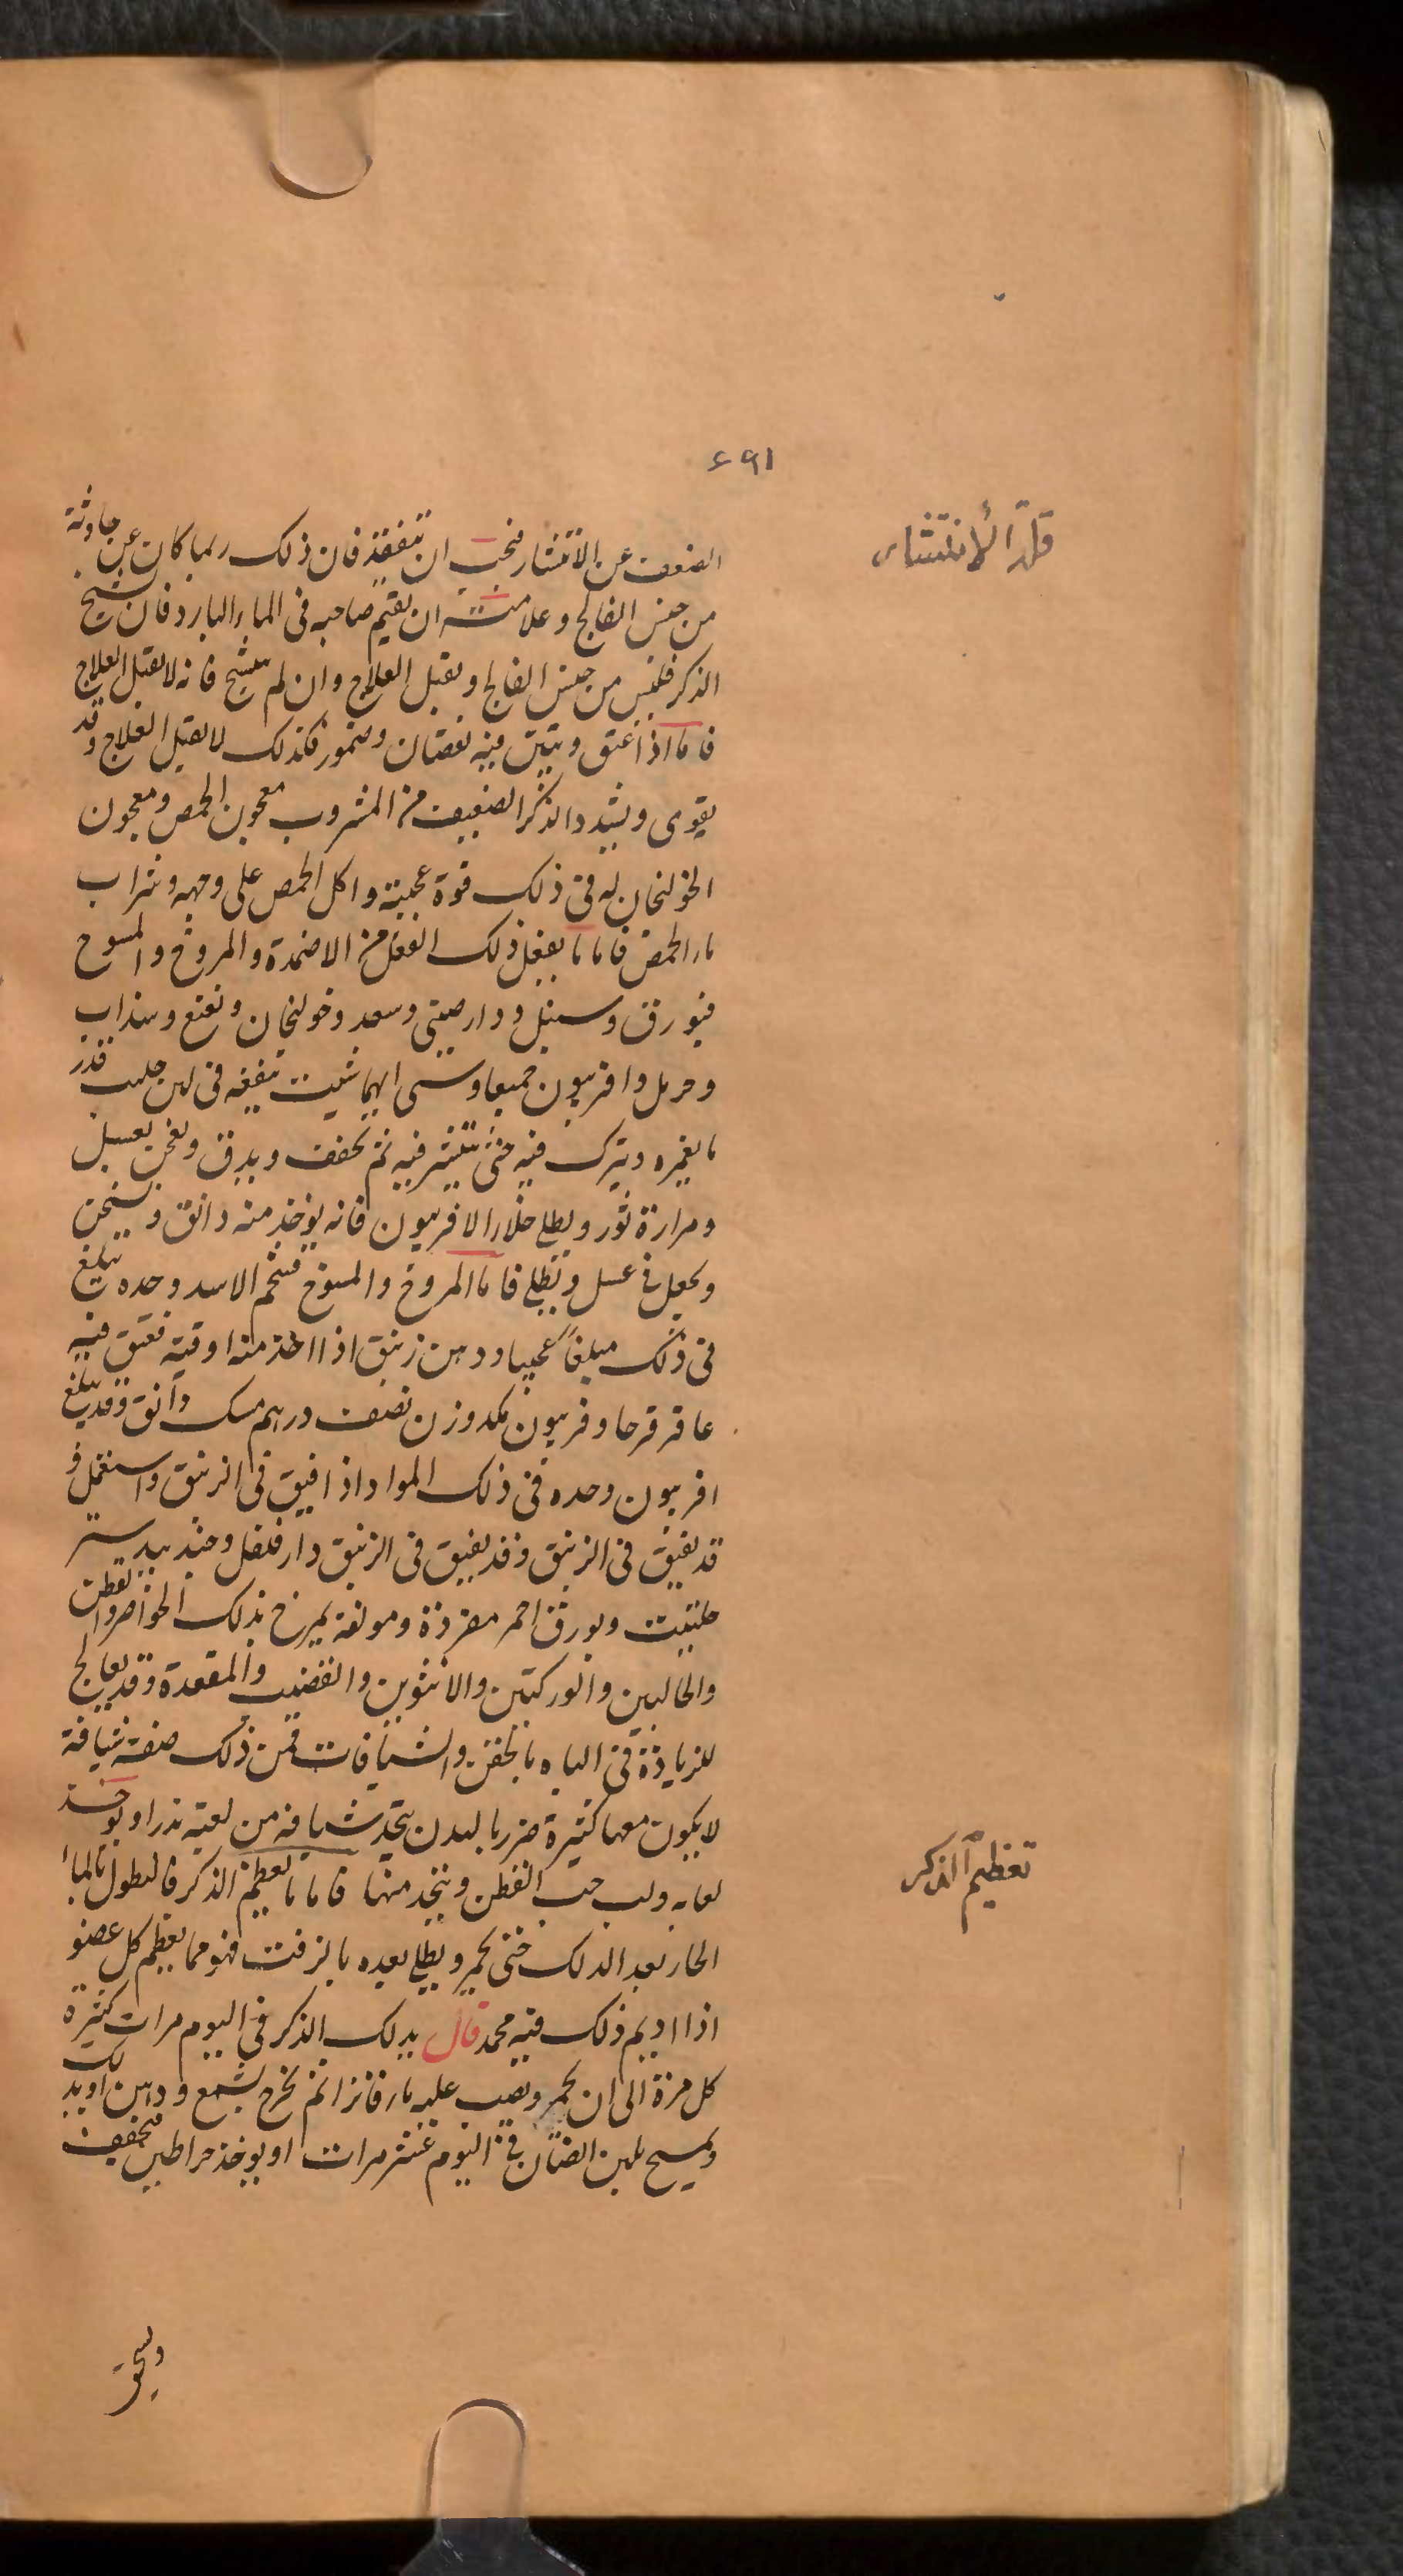 ٦٩١
قلة الانتشار
الضعف عن الانتشار فيجب ان يتفقد فان ذلك ربما كان عن حادثة
من جنس الفالج وعلامته ان يقيم صاحبه فى الماء البارد فان تشنج
الذكر فليس من جنس الفالج ويقبل العلاج وان لم يتشنج فانه لا يقبل العلاج
فاما اذا عتق وتبين فيه نقصان وضمور فكذلك لا يقبل العلاج وقد
يقوى ويشدد الذكر الضعيف من المشروب معجون الحمص ومعجون
الخولنجان له فى ذلك قوة عجيبة واكل الحمص على وجهه وشراب
ماء الحمص فاما ما يفعل ذلك الفعل من الاضمدة والمروخ والمسوح
فبورق وسنبل ودارصينى وسعد وخولنجان ونعنع وسذاب
وحرمل وافربيون جميعا وشتى ايهما شيت تنقعه فى لبن حليب قدر
ما يغمره ويترك فيه حتى ينتشر فيه ثم يجفف ويدق ويعجن بعسل
ومرارة ثور ويطلى خلا الافربيون فانه يوخذ منه دانق ويسحق
ويجعل فى عسل ويطلى فاما المروخ والمسوح فشحم الاسد وحده يبلغ
فى ذلك مبلغا عجيبا ودهن زنبق اذا اخذ منه اوقية ففتق فيه
عاقرقرحا وفربيون مكد وزن نصف درهم مسك دانق وقد يبلغ
افربيون وحده فى ذلك المواد اذا فتق فى الزنبق واستعمل و
قد يفتق فى الزنبق وقد يفتق فى الزنبق دارفلفل وجندبيدستر
حلتيت وبورق احمر مفردة ومولفة يمرخ بذلك الخواصر والقطن
والحالبين والوركين والانثوين والقضيب والمقعدة وقد يعالج
للزيادة فى الباه بالحقن والشيافات فمن ذلك صفة شيافة
لا يكون معها كثيرة ضرر بالبدن يتخذ شيافه من لعبة بذرا ويوخذ
لعابه ولب حب القطن ويتخذ منها فاما ما يعظم الذكر فالنطول بالماء
تعظيم الذكر
الحار بعد الدلك حتى يحمر ويطلى بعده بالزفت فهو مما يعظم كل عضو
اذا اديم ذلك فيه محمد قال يدلك الذكر فى اليوم مرات كثيرة
كل مرة الى ان يحمر ويصب عليه ماء فاترا ثم يمرخ بشمع ودهن او يدلك
ويمسح بلبن الضان فى اليوم عشر مرات او يوخذ خراطين فتجفف
وتسحق